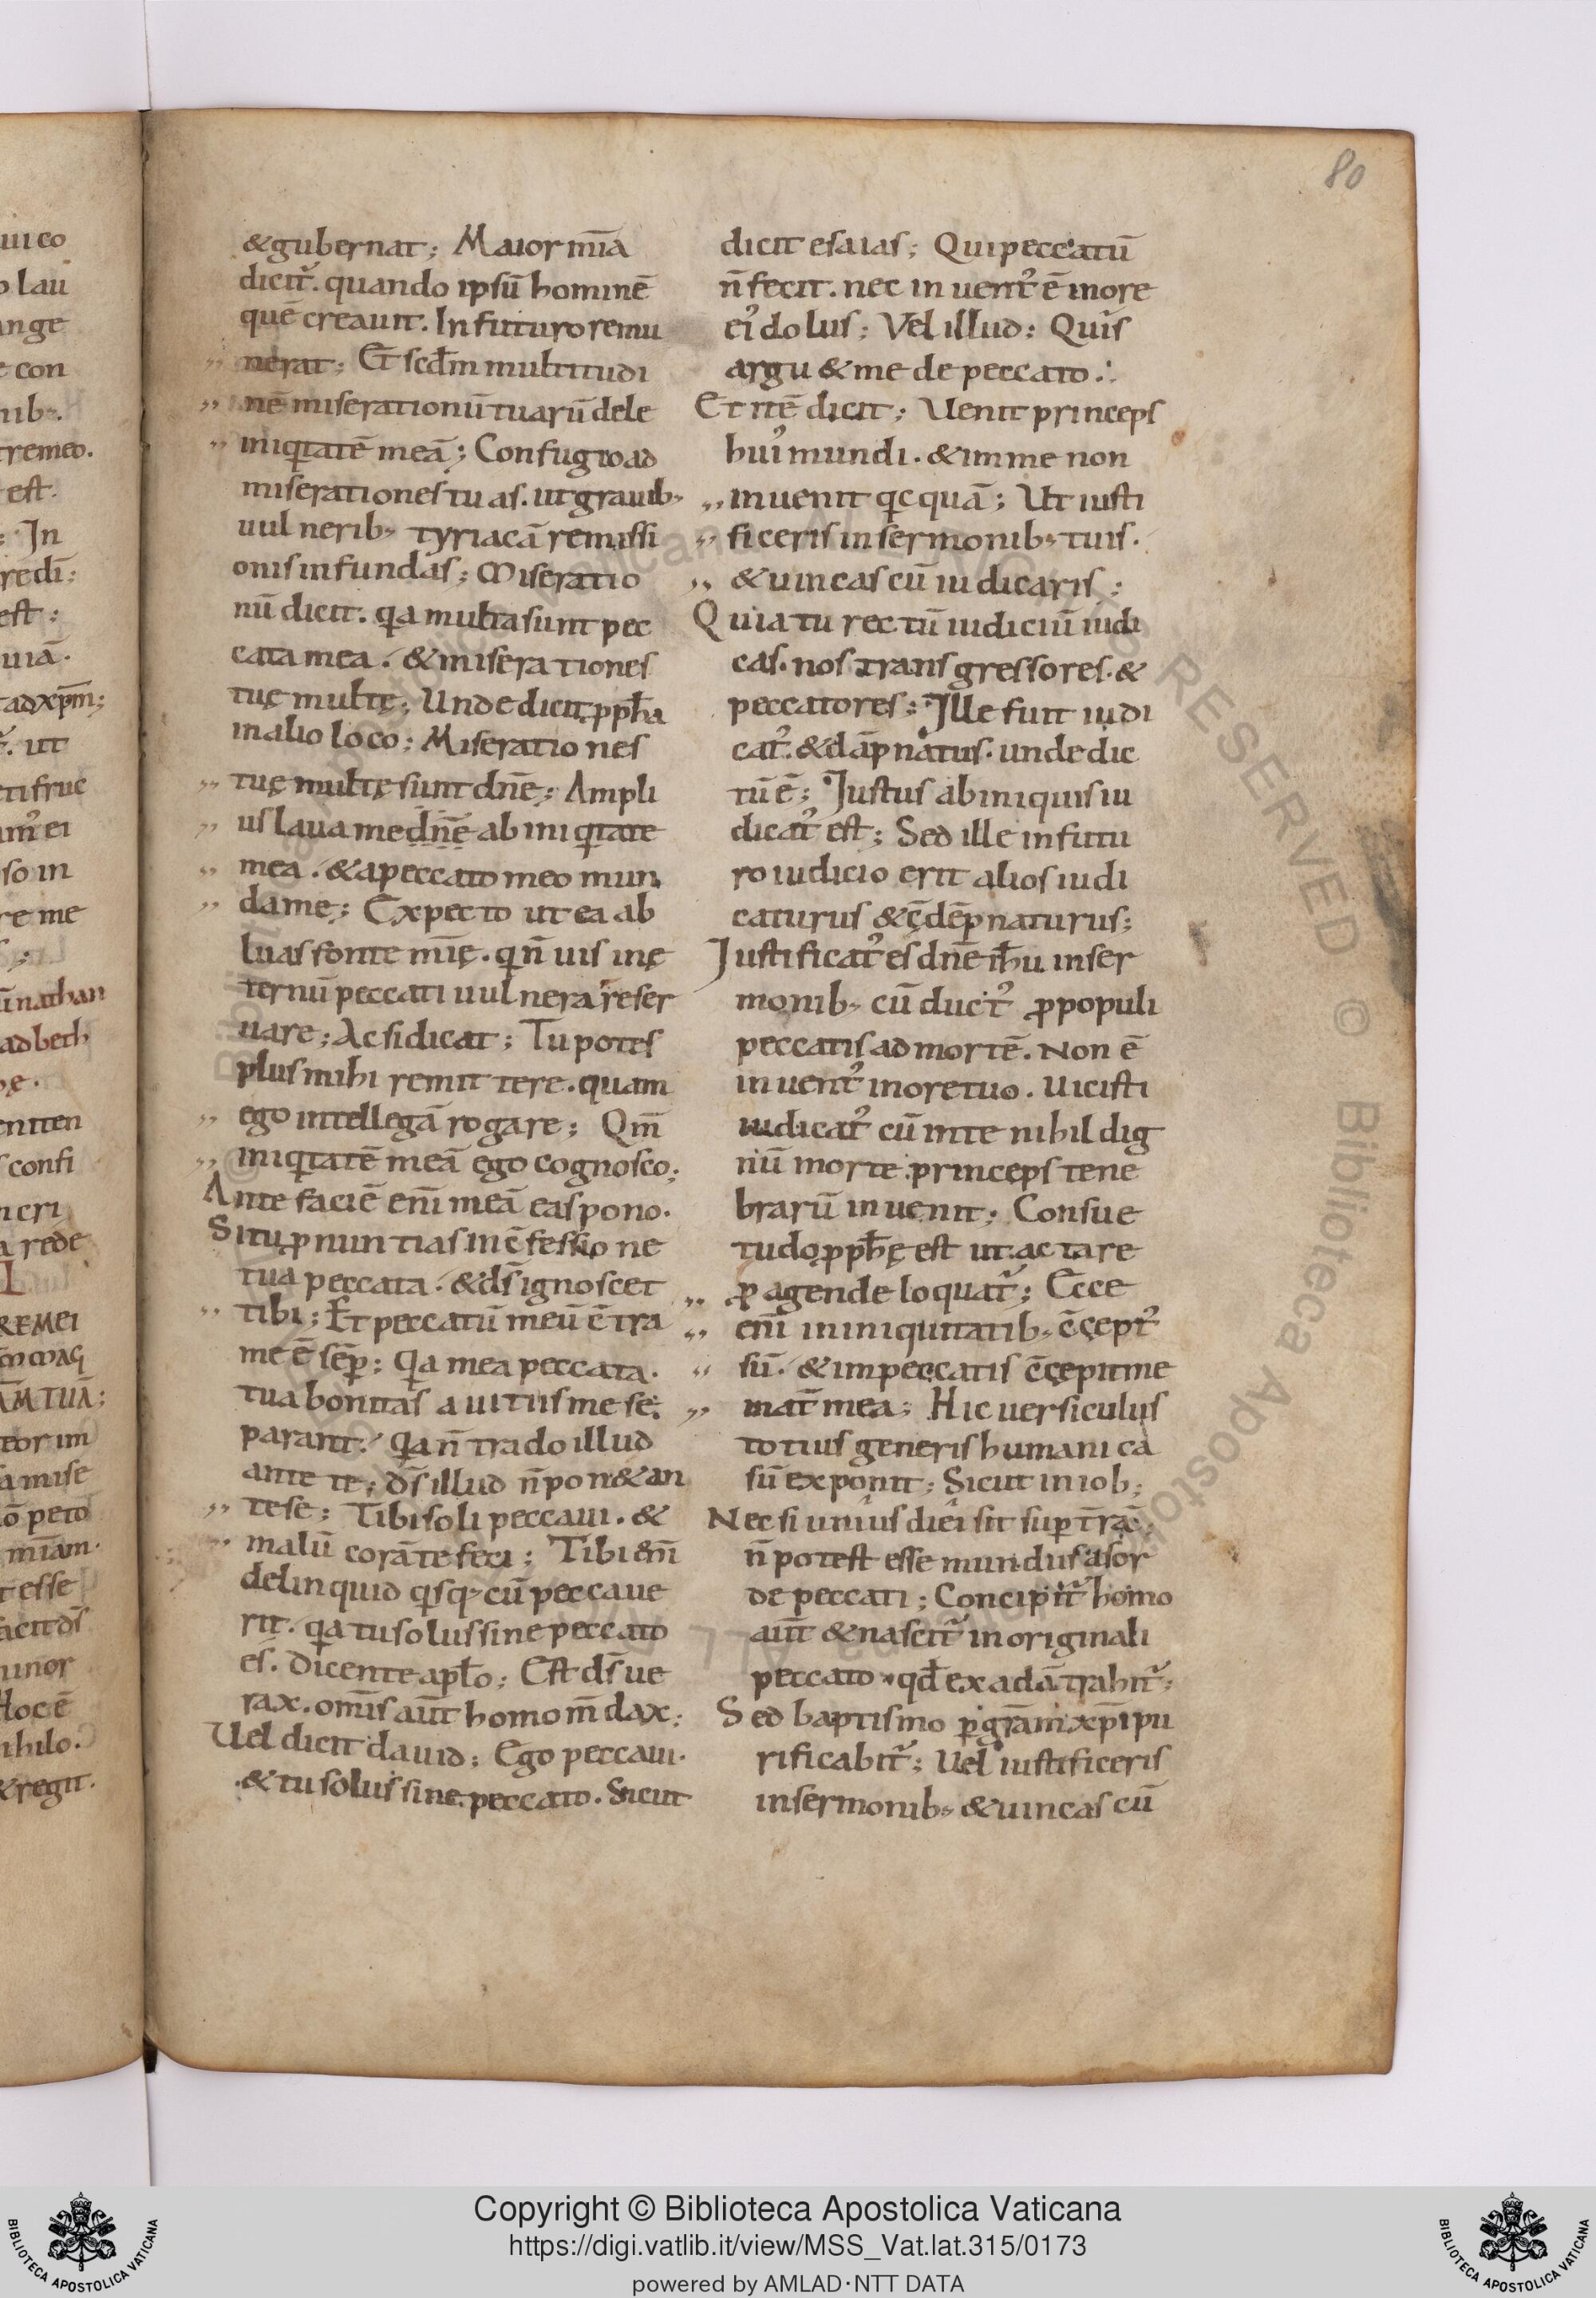 80
&gubernat; Maior mīa
dicit̃. quando ipsū hominē
quē creauit. In futuro remu
nerat; Et scd̄m multitudi
nē miserationū tuarū dele
iniqitatē meā; Confugio ad
miserationes tuas. ut grauib;
uulnerib; tyriacā remissi
onis infundas; Miseratio
nū dicit. qia multa sunt pec
cata mea. & miserationes
tuę multę; Unde dicit ꝓph̄a
in alio loco; Miserationes
tuę multę sunt dn̄e; Ampli
us laua me dn̄e ab iniqitate
mea. & a peccato meo mun
da me; Expecto ut ea ab
luas fonte mīę. qi n̄ uis in ę
ternū peccati uulnera reser
uare; Ac si dicat; Tu potes
plus mihi remittere. quam
ego intellegā rogare; Qm̄
iniqitatē meā ego cognosco;
Ante faciē enī meā eas pono.
Si tu ꝓnuntias in c̄fessione
tua peccata. & ds̄ ignoscet
tibi; Et peccatū meū c̄tra
me ē semꝑ; Qia mea peccata.
tua bonitas a uitiis me se
parant. Qia n̄ trado illud
ante te; ds̄ illud n̄ pon& an
te se; Tibi soli peccaui. &
malū corā te feci; Tibi enī
delinquid qisq; cū peccaue
rit. qia tu solus sine peccato
es. Dicente apl̄o; Est ds̄ ue
rax. omīs aūt homo m̄dax;
Uel dicit dauid; Ego peccaui.
& tu solus sine peccato. Sicut
dicit esaias; Qui peccatū
n̄ fecit. nec inuent᾽ ē in ore
ei᾽ dolus; Vel illud; Quis
argu& me de peccato.
Et itē dicit; Uenit princeps
hui᾽ mundi. & in me non
inuenit qicquā; Ut iusti
ficeris in sermonib; tuis.
& uincas cū iudicaris;
Quia tu rectū iudiciū iudi
cas. nos transgressores. &
peccatores; Ille fuit iudi
cat᾽. & dāpnatus. unde dic
tū ē; Iustus ab iniquis iu
dicat᾽ est; Sed ille in futu
ro iudicio erit alios iudi
caturus & c̄dēpnaturus;
Iustificat᾽ es dn̄e ih̄u in ser
monib; cū duct᾽ ꝓ populi
peccatis ad mortē. Non ē
inuent᾽ in ore tuo. Uicisti
iudicat᾽ cū in te nihil dig
nū morte princeps tene
brarū inuenit; Consue
tudo ꝓph̄ę est ut ac tare
ꝓ agende loquat̃; Ecce
enī in iniquitatib; c̄cept᾽
sū. & in peccatis c̄cepit me
mat̄ mea; Hic uersiculus
totius generis humani cā
sū exponit; Sicut in iob;
Nec si unius diei sit suꝑ t̄rā.
n̄ potest esse mundus a sor
de peccati; Concipit̃ homo
aūt & nascit̃ in originali
peccato. qd̄ ex adā trahit̃;
Sed baptismo ꝑ grām xp̄i pu
rificabit̃; Uel iustificeris
in sermonib; & uincas cū
Copyright © Biblioteca Apostolica Vaticana
https://digi.vatlib.it/view/MSS_Vat.lat.315/0173
powered by AMLAD·NTT DATA